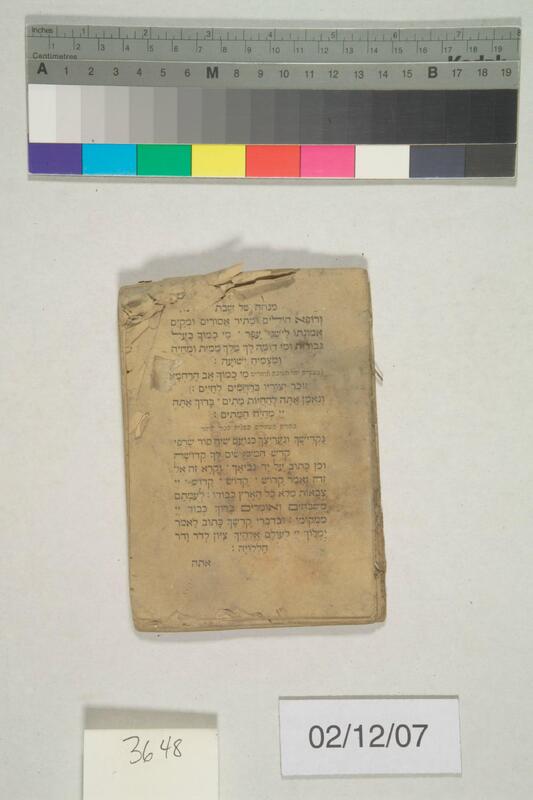 Inches 1 2 3 4 5 6 7 8
Centimetres 1 2 3 4 5 6 7 8 9 10 11 12 13 14 15 16 17 18 19
Kodak
A 1 2 3 4 5 6 M 8 9 10 11 12 13 14 15 B 17 18 19
מנוחה של שבת
וְרוֹפֵא חוֹלִים וּמַתִּיר אֲסוּרִים וּמְקַיֵּם
אֱמוּנָתוֹ לִישֵׁנֵי עָפָר ׳ מִי כָמוֹךָ בַּעַל
גְּבוּרוֹת וּמִי דּוֹמֶה לָּךְ מֶלֶךְ מֵמִית וּמְחַיֶּה
וּמַצְמִיחַ יְשׁוּעָה :
מִי כָמוֹךָ אַב הָרַחֲמָן
זוֹכֵר יְצוּרָיו בְּרַחֲמִים לְחַיִּים :
וְנֶאֱמָן אַתָּה לְהַחֲיוֹת מֵתִים ׳ בָּרוּךְ אַתָּה
יְיָ מְחַיֵּה הַמֵּתִים :
נַקְדִּישָׁךְ וְנַעֲרִיצָךְ כְּנוֹעַם שִׂיחַ סוֹד שַׂרְפֵי
קֹדֶשׁ הַמְשַׁלְּשִׁים לְךָ קְדוּשָּׁה
וְכֵן כָּתוּב עַל יַד נְבִיאָךְ ׳ וְקָרָא זֶה אֶל
זֶה וְאָמַר קָדוֹשׁ ׳ קָדוֹשׁ ׳ קָדוֹשׁ ׳ יְיָ
צְבָאוֹת מְלֹא כָל הָאָרֶץ כְּבוֹדוֹ : לְעֻמָּתָם
מְשַׁבְּחִים וְאוֹמְרִים בָּרוּךְ כְּבוֹד יְיָ
מִמְּקוֹמוֹ : וּבְדִבְרֵי קָדְשָׁךְ כָּתוּב לֵאמֹר
יִמְלוֹךְ יְיָ לְעוֹלָם אֱלֹהַיִךְ צִיּוֹן לְדֹר וָדֹר
הַלְלוּיָהּ :
אתה
3648
02/12/07